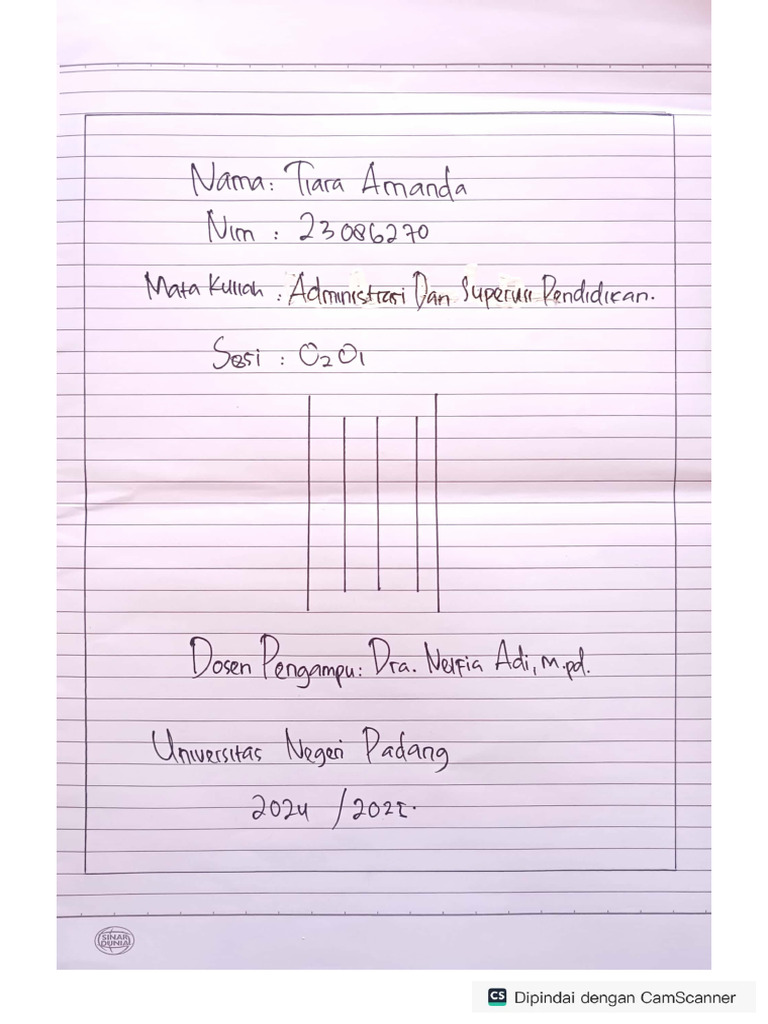 Nama: Tiara Amanda
Nim : 23086270
Mata Kuliah : Administrasi Dan Supervisi Pendidikan.
Sesi : 0201
Dosen Pengampu: Dra. Nelfia Adi, M.pd.
Universitas Negeri Padang
2024 / 2025.
SINAR
DUNIA
CS Dipindai dengan CamScanner